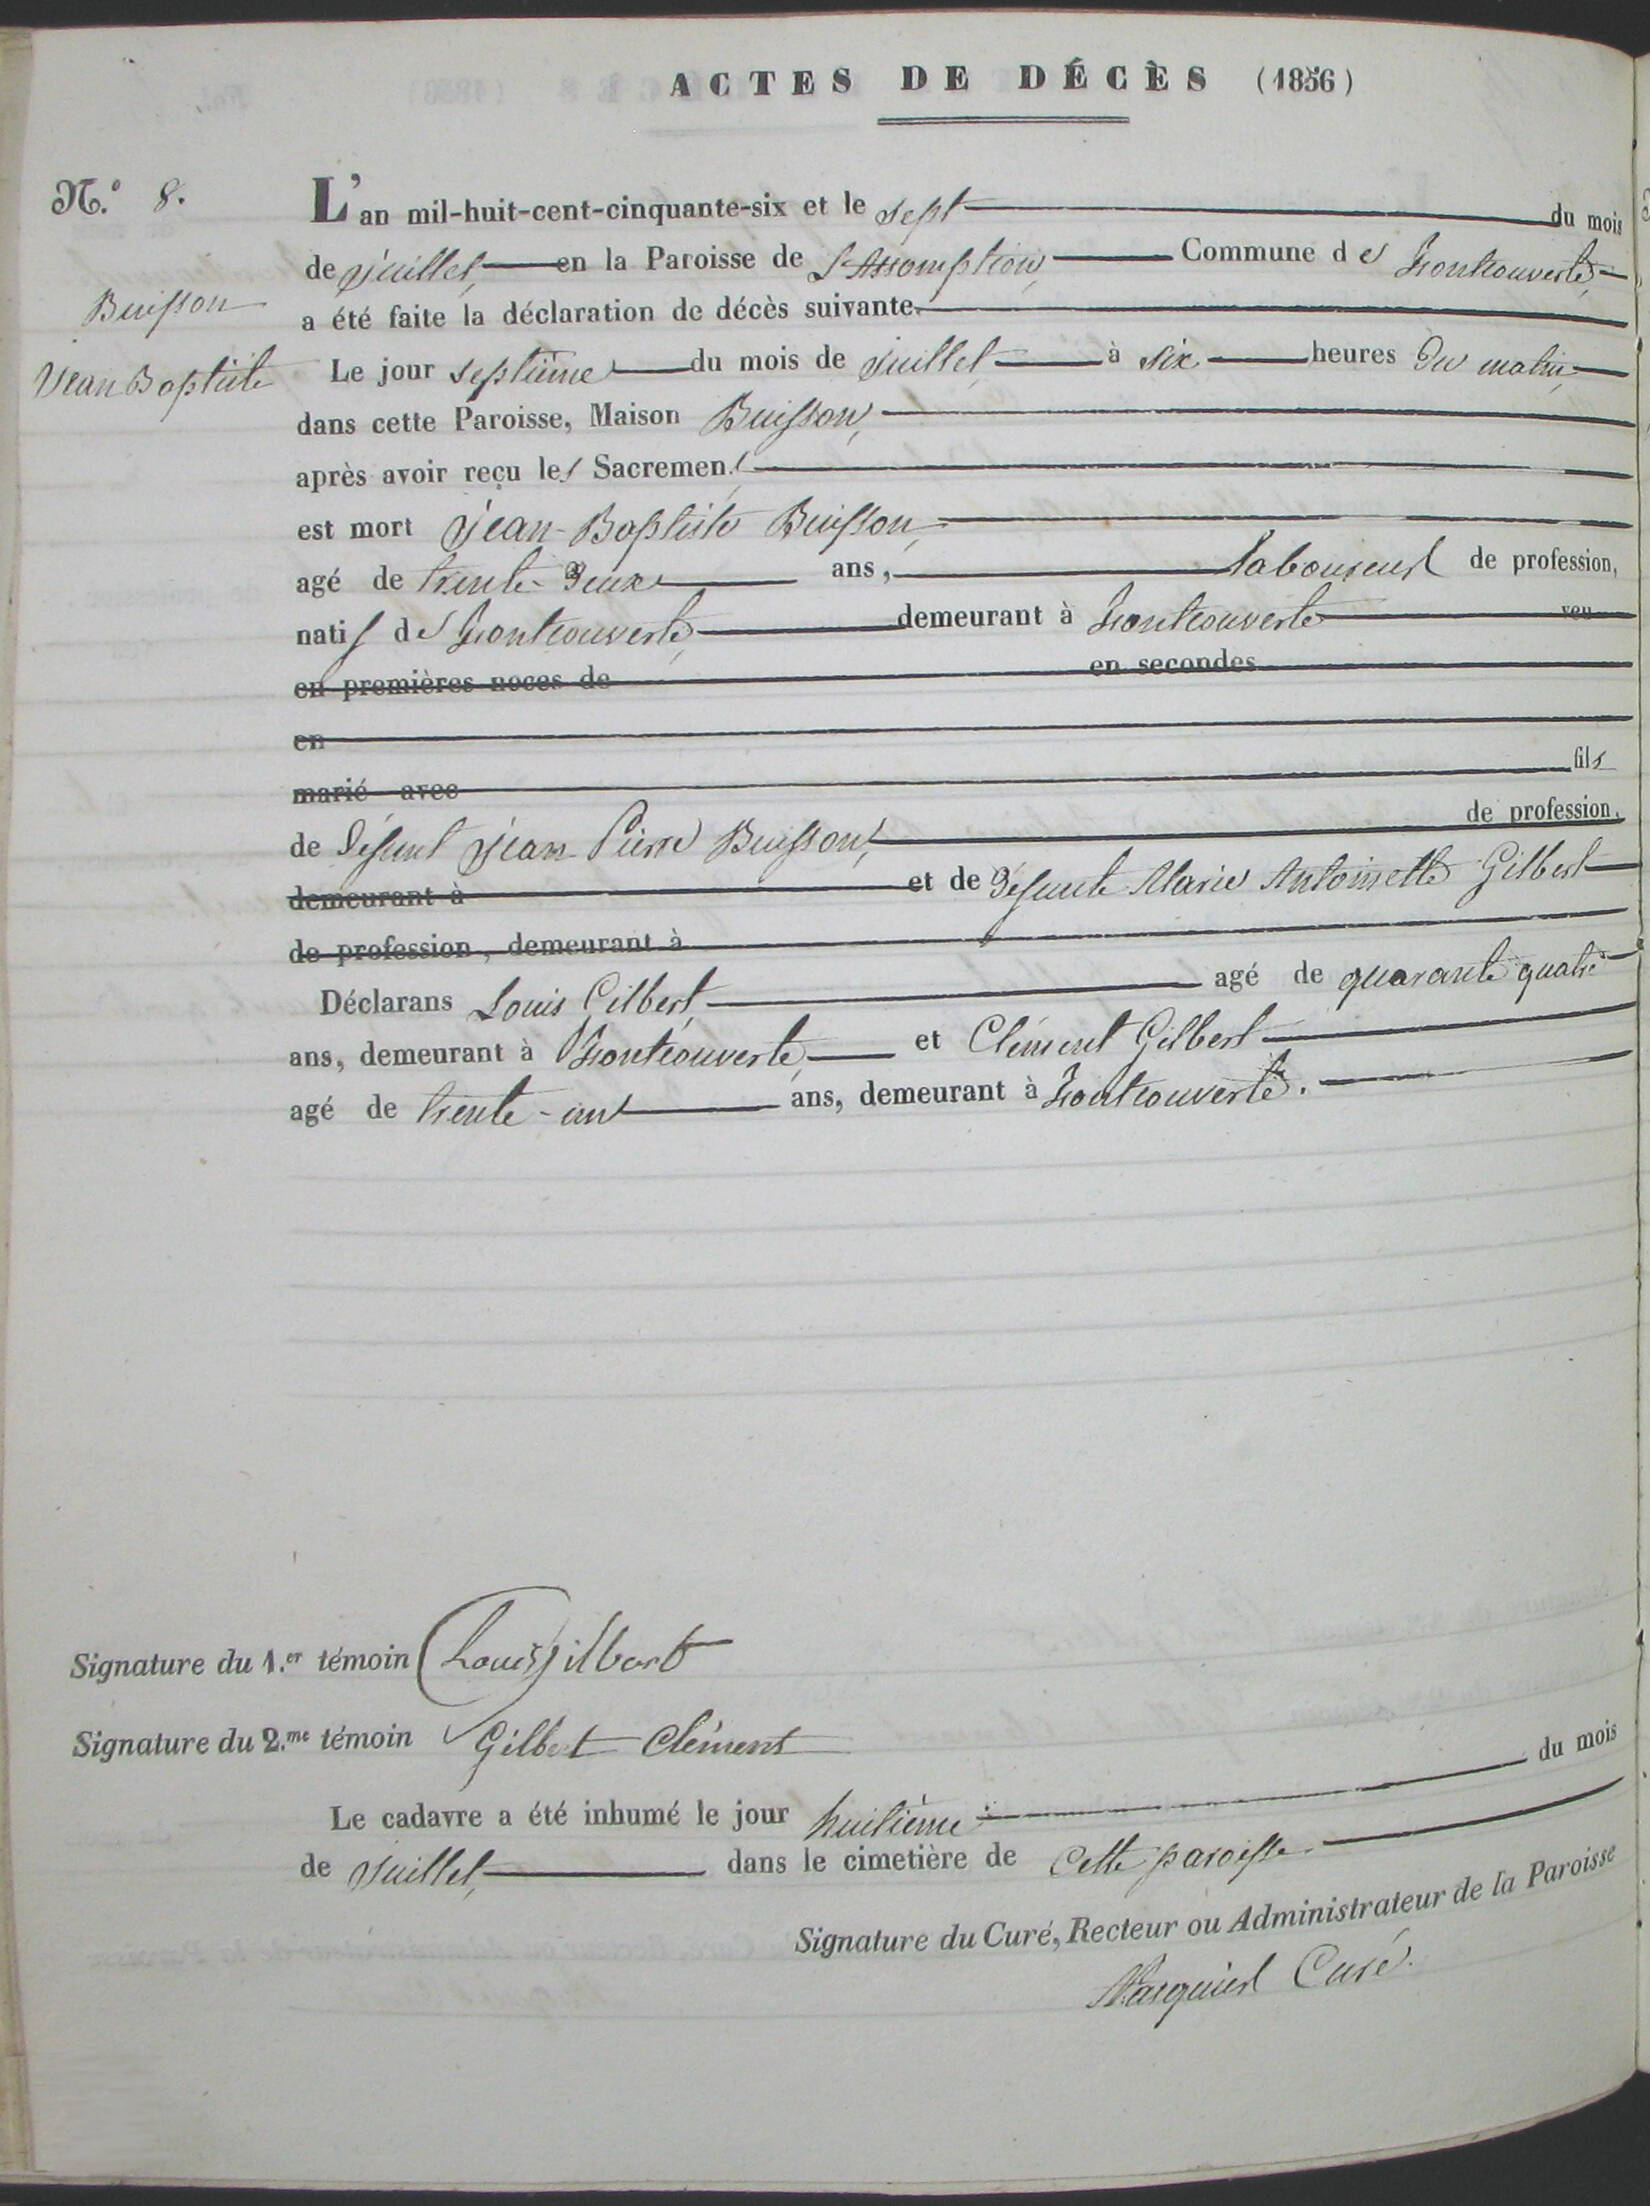 ACTES DE DÉCÈS (1856)
N.o 8.
Buisson
Jean Baptiste
L'an mil-huit-cent-cinquante-six et le sept du mois
de juillet, en la Paroisse de L'Assomption, Commune de Fontcouverte,
a été faite la déclaration de décès suivante.
Le jour septième du mois de juillet à six heures du matin,
dans cette Paroisse, Maison Buisson,
après avoir reçu les Sacremens,
est mort Jean-Baptiste Buisson,
agé de trente-deux ans, laboureur de profession,
natif de Fontcouverte, demeurant à Fontcouverte veu
en premières noces de en secondes
en
marié avec fils
de défunt Jean Pierre Buisson, de profession,
demeurant à et de défunte Marie Antoinette Gilbert
de profession, demeurant à
Déclarans Louis Gilbert, agé de quarante quatre
ans, demeurant à Fontcouverte, et Clément Gilbert
agé de trente-un ans, demeurant à Fontcouverte.
Signature du 1.er témoin Louis Gilbert
Signature du 2.me témoin Gilbert Clément
Le cadavre a été inhumé le jour huitième du mois
de juillet, dans le cimetière de cette paroisse.
Signature du Curé, Recteur ou Administrateur de la Paroisse
Curé.